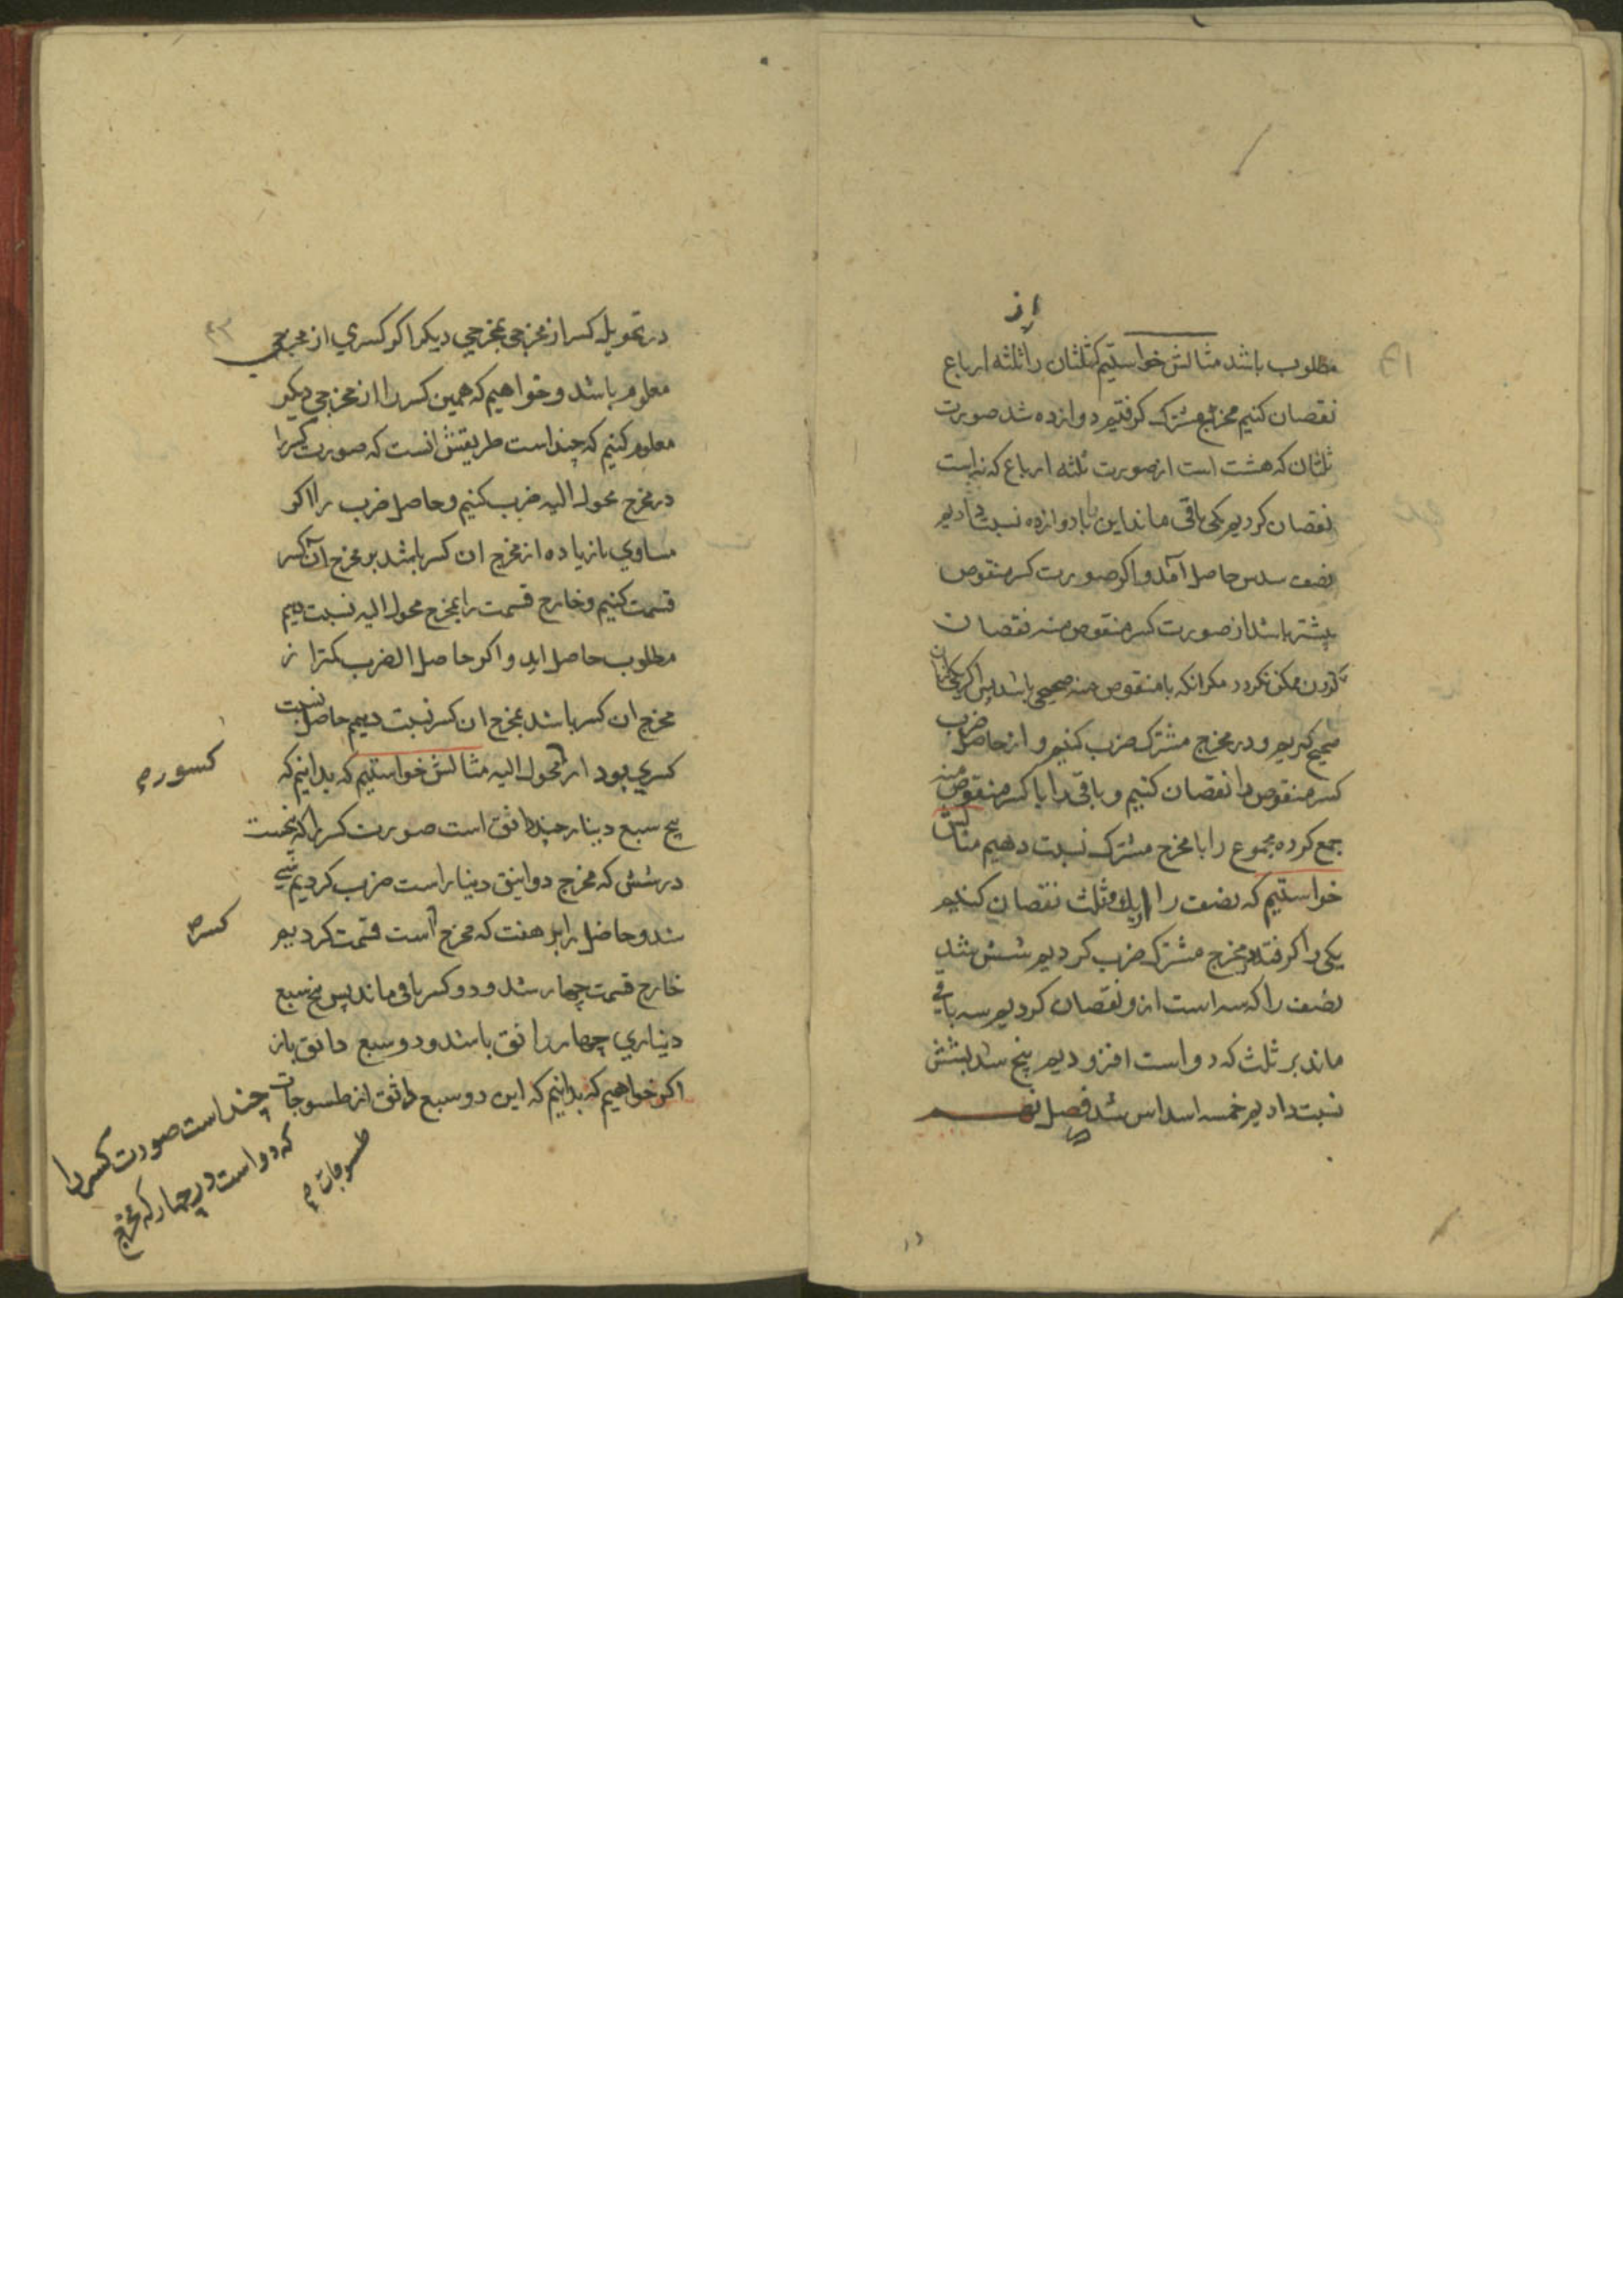 از
مطلوب باشد مثالش خواستیم که ثلثان را ثلثه ارباع
نقصان کنیم مخرج مشترک کرفتیم دوازده شد صورت
ثلثان که هشت است از صورت ثلثه ارباع که نه است
نقصان کردیم یکی باقی ماند این را با دوازده نسبت دادیم
نصف سدس حاصل آمد و اکر صورت کسر منقوص
بیشتر باشد از صورت کسر منقوص منه نقصان
کردن ممکن نکردد مکر انکه با منقوص منه صحیحی باشد پس اکر یکی ازان
صحیح کیریم و در مخرج مشترک ضرب کنیم و از حاصل ضرب
کسر منقوص را نقصان کنیم و باقی را با کسر منقوص منه
جمع کرده مجموع را با مخرج مشترک نسبت دهیم مثالش
خواستیم که نصف را از یک و ثلث نقصان کنیم
یکی را کرفته در مخرج مشترک ضرب کردیم شش شد
نصف را که سه است ازو نقصان کردیم سه باقی
ماند بر ثلث که دو است افزودیم پنج شد بشش
نسبت دادیم خمسه اسداس شد فصل نهم
در
در تحویل کسر از مخرجی بمخرجی دیکر اکر کسری از مخرجی
معلوم باشد و خواهیم که همین کسر را از مخرجی دیکر
معلوم کنیم که چند است طریقش انست که صورت کسر را
در مخرج محول الیه ضرب کنیم و حاصل ضرب را اکر
مساوی یا زیاده از مخرج ان کسر باشد بر مخرج آن کسر
قسمت کنیم و خارج قسمت را بمخرج محول الیه نسبت دهیم
مطلوب حاصل اید و اکر حاصل الضرب کمتر از
مخرج ان کسر باشد بمخرج ان کسر نسبت دهیم حاصل نسبت
کسری بود از محول الیه مثالش خواستیم که بدانیم که
کسور م
پنج سبع دینار چند دانق است صورت کسر را که پنجست
در شش که مخرج دوانیق دینار است ضرب کردیم سی
شد و حاصل را بر هفت که مخرج است قسمت کردیم
کسر ص
خارج قسمت چهار شد و دو کسر باقی ماند پس پنج سبع
دیناری چهار دانق باشد و دو سبع دانق باز
اکر خواهیم که بدانیم که این دو سبع دانق از طسوجات چند است صورت کسر را
که دو است در چهار که مخرج
طسوجات م